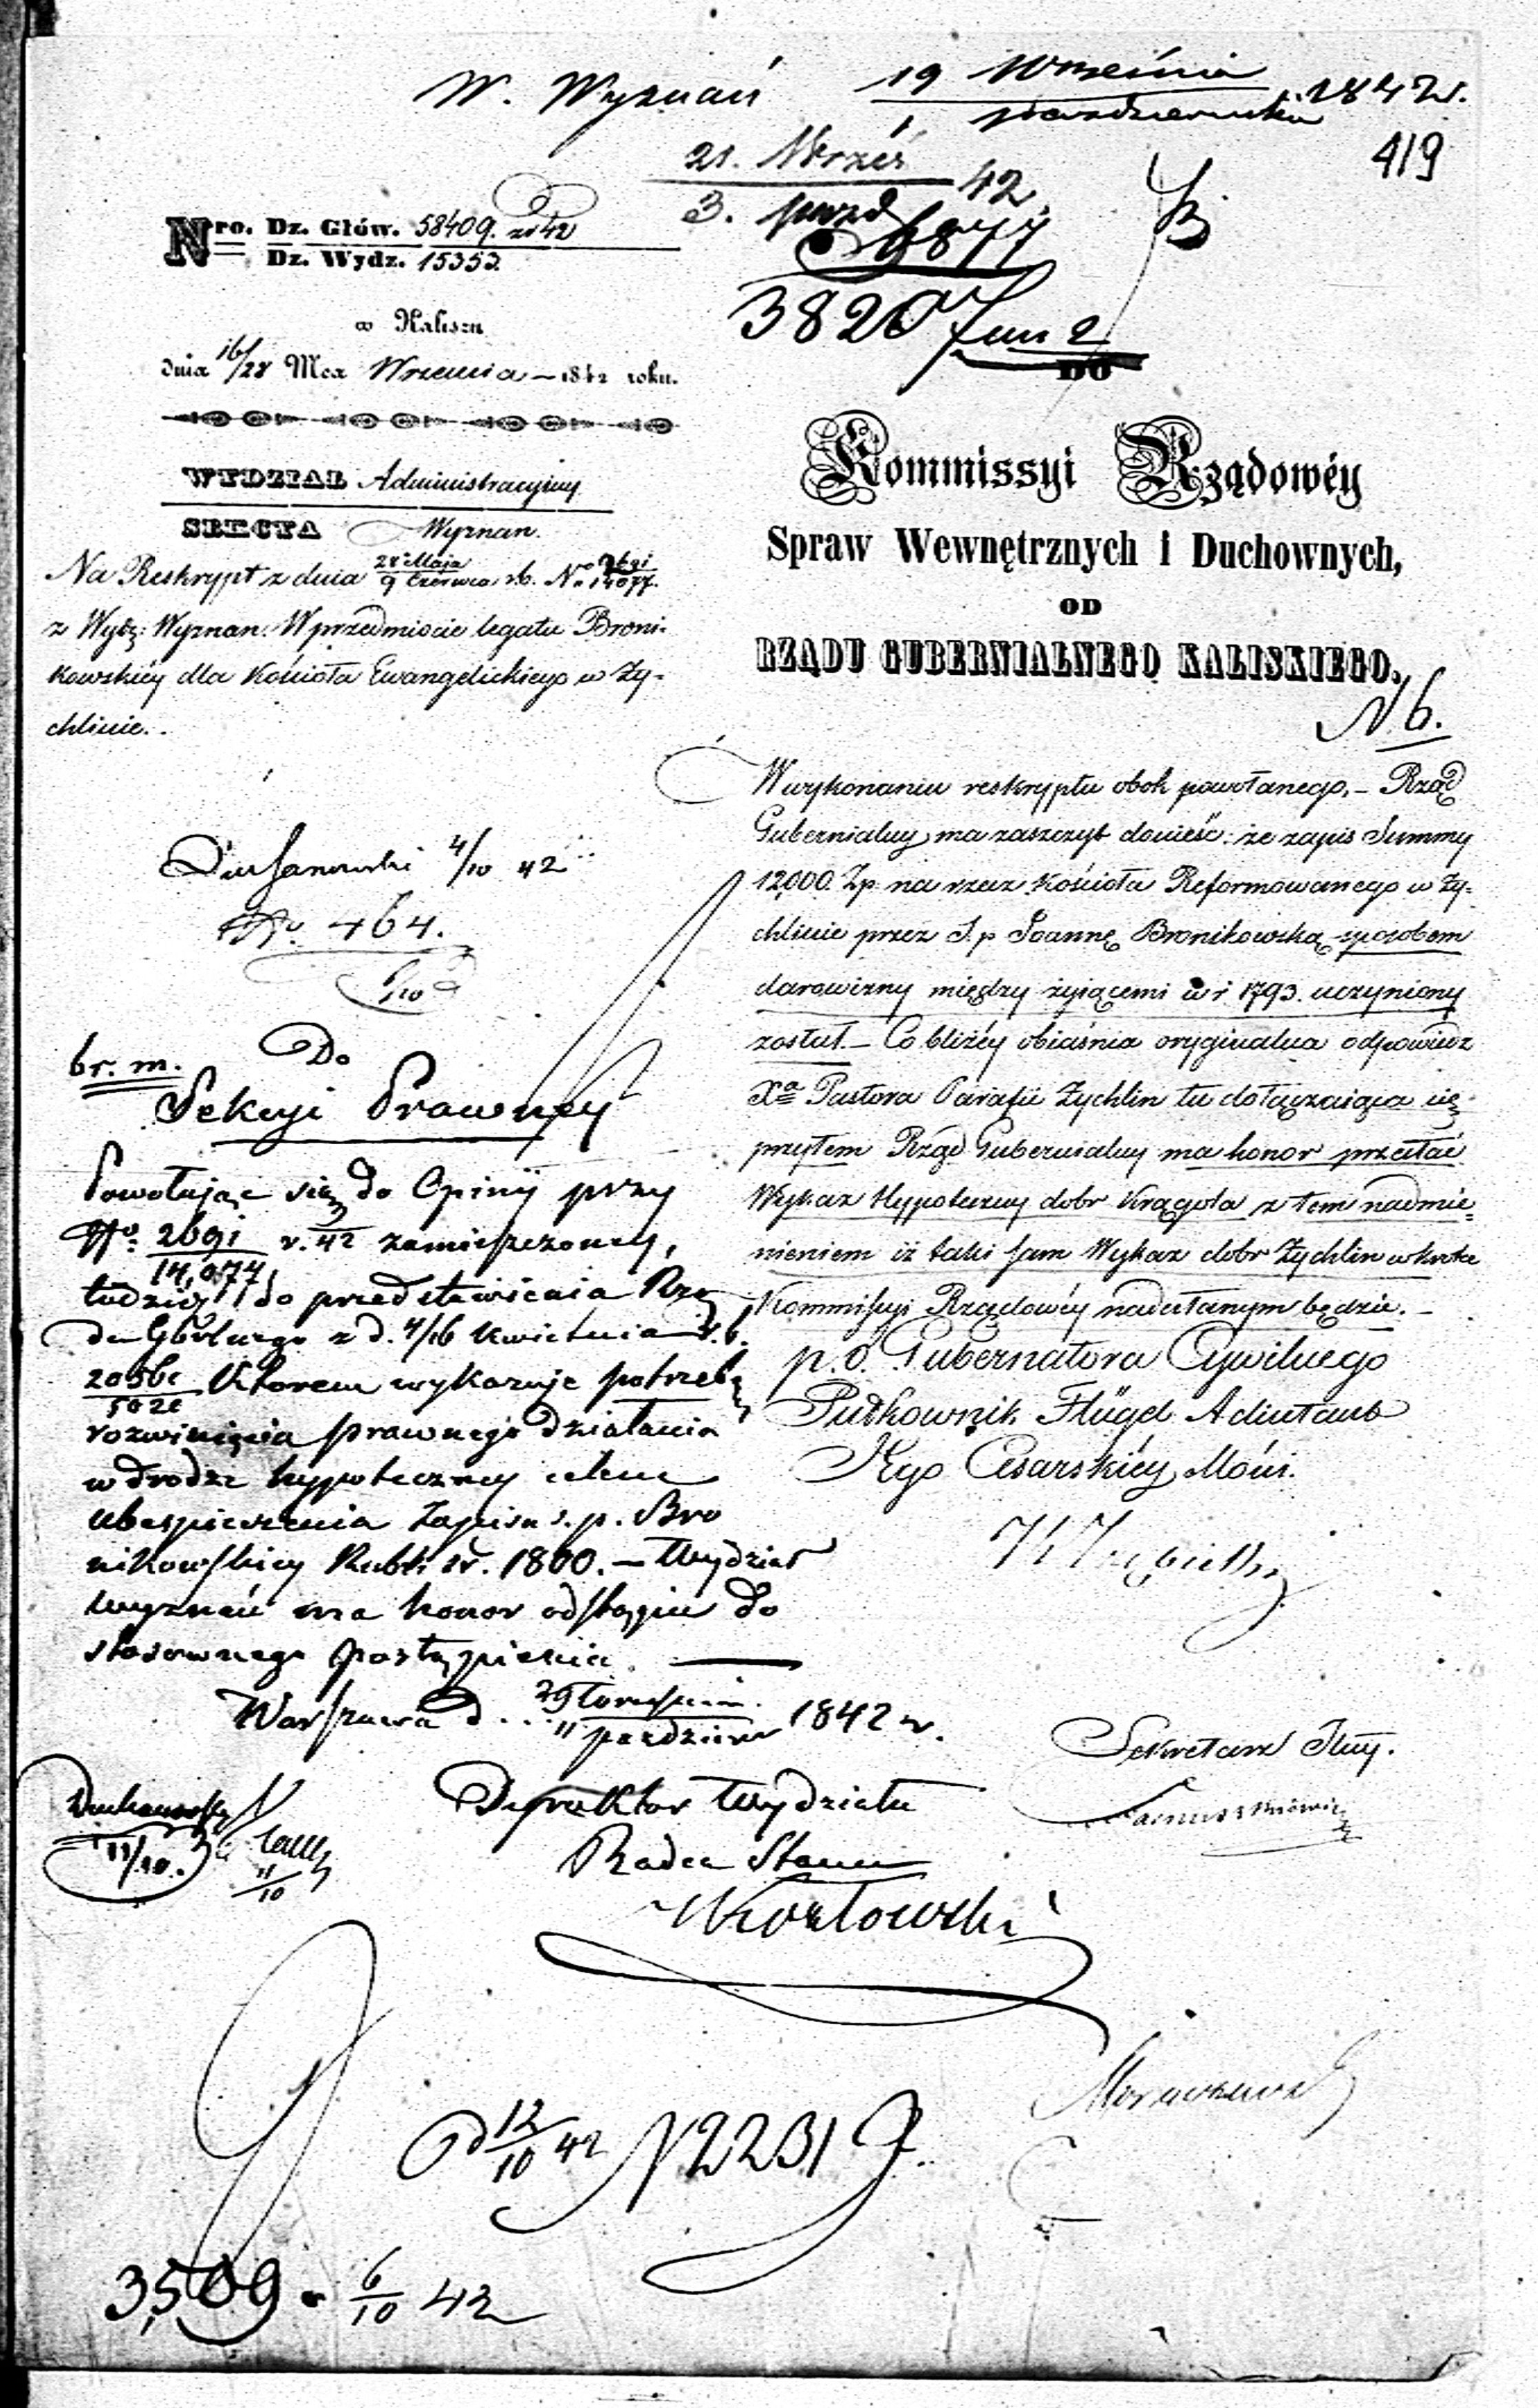 W. Wyznań 19 Września 1842 r.
1 października
419
21. Wrześ 42
3. paźd
6877
38207
Nro. Dz. Głów. 58409. ad 42
Dz. Wydz. 15353.
w Kaliszu
dnia 16/28 Mca Września — 1842 roku.
WYDZIAŁ Administracyjny
SEKCYA Wyznan.
Na Reskrypt z dnia 28 Maja / 9 Czerwca r.b. No 2691/14077.
z Wydz: Wyznan: W przedmiocie legatu Broni-
kowskiéy dla Kościoła Ewangelickiego w Ży-
chlinie.
DO
Kommissyi Rządowéy
Spraw Wewnętrznych i Duchownych,
OD
RZĄDU GUBERNIALNEGO KALISKIEGO.
N 6.
W wykonaniu reskryptu obok powołanego, — Rząd
Gubernialny ma zaszczyt donieść: że zapis Summy
12,000 Zp. na rzecz Kościoła Reformowanego w Ży-
chlinie przez S. p Joannę Bronikowską sposobem
darowizny między żyiącemi w r 1793. uczyniony
został. — Co bliżéy obiaśnia oryginalna odpowiedź
Xa Pastora Parafii Żychlin tu dołączaiąca się
przytem Rząd Gubernialny ma honor przesłać
Wykaz Hypoteczny dobr Krągola z tem nadmie-
nieniem iż taki sam Wykaz dobr Żychlin wkrótce
Kommissyi Rządowéy nadesłanym będzie. —
p. o. Gubernatora Cywilnego
Pułkownik Flügel Adiutant
Jego Cesarskiéy Mości.
Sekretarz Jlny.
4/10 42
No. 464.
6/10
br. m.
Do
Sekcyi Prawney
Powołując się do Opinij przy
No. 2691/14,077 r. 42 zamieszczoney,
tudzież do przedstawienia Rzą
du Gblnego z d. 4/16 Kwietnia r. b.
Którem wykazuje potrzebę
rozwinięcia prawnego działania
w drodze hypoteczney celem
ubezpieczenia Zapisu s. p. Bro
nikowskiey Rubli sr. 1800. — Wydział
Wyznań ma honor odstąpić do
stosownego postąpienia. —
Warszawa d. 29 Września / 11 październ 1842 r.
Dyrektor Wydziału
Radca Stanu
Kozłowski
11/10.
11/10
Od 12/10 42 N 2231
3,509. 6/10 42